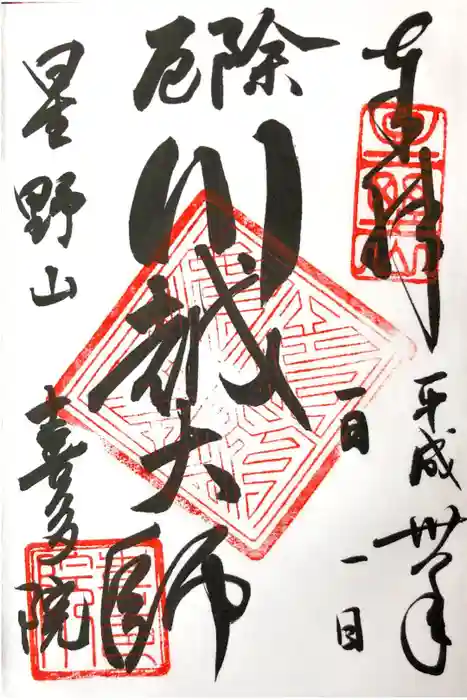 奉拝
平成卅一年
一月
一日
厄除
川越大師
星野山
喜多院